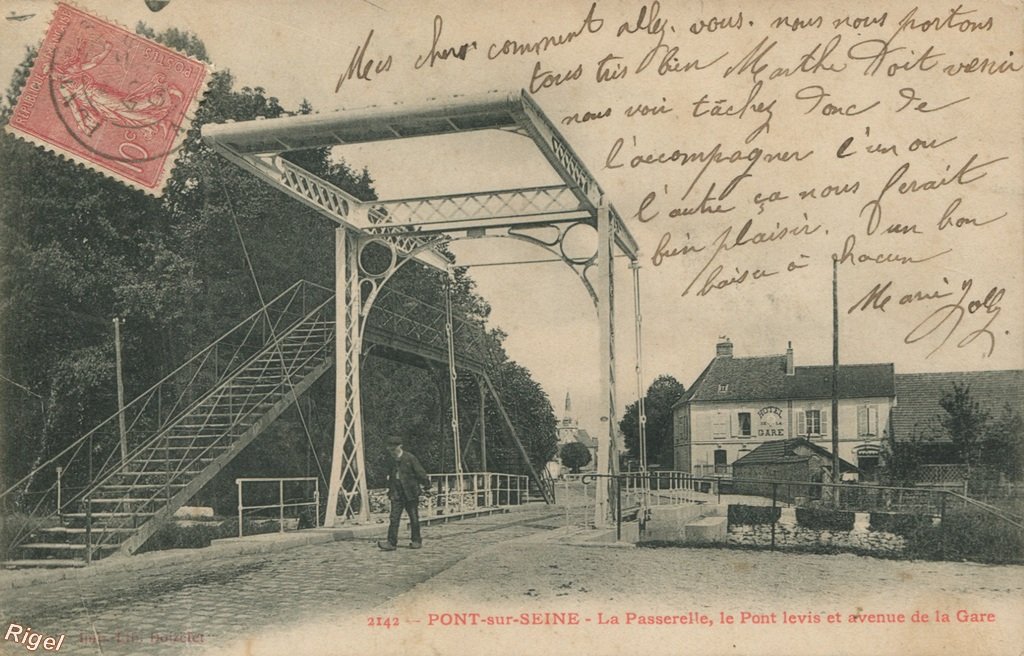 Mes chers comment allez. vous. nous nous portons
tous très bien Marthe Doit venir
nous voir tâchez donc de
l'accompagner l'un ou
l'autre ça nous ferait
bien plaisir. D'un bon
baiser à chacun
Marie Joly
RÉPUBLIQUE FRANÇAISE
POSTES
10
HOTEL
DE LA
GARE
2142 – PONT-sur-SEINE - La Passerelle, le Pont levis et avenue de la Gare
Rigel